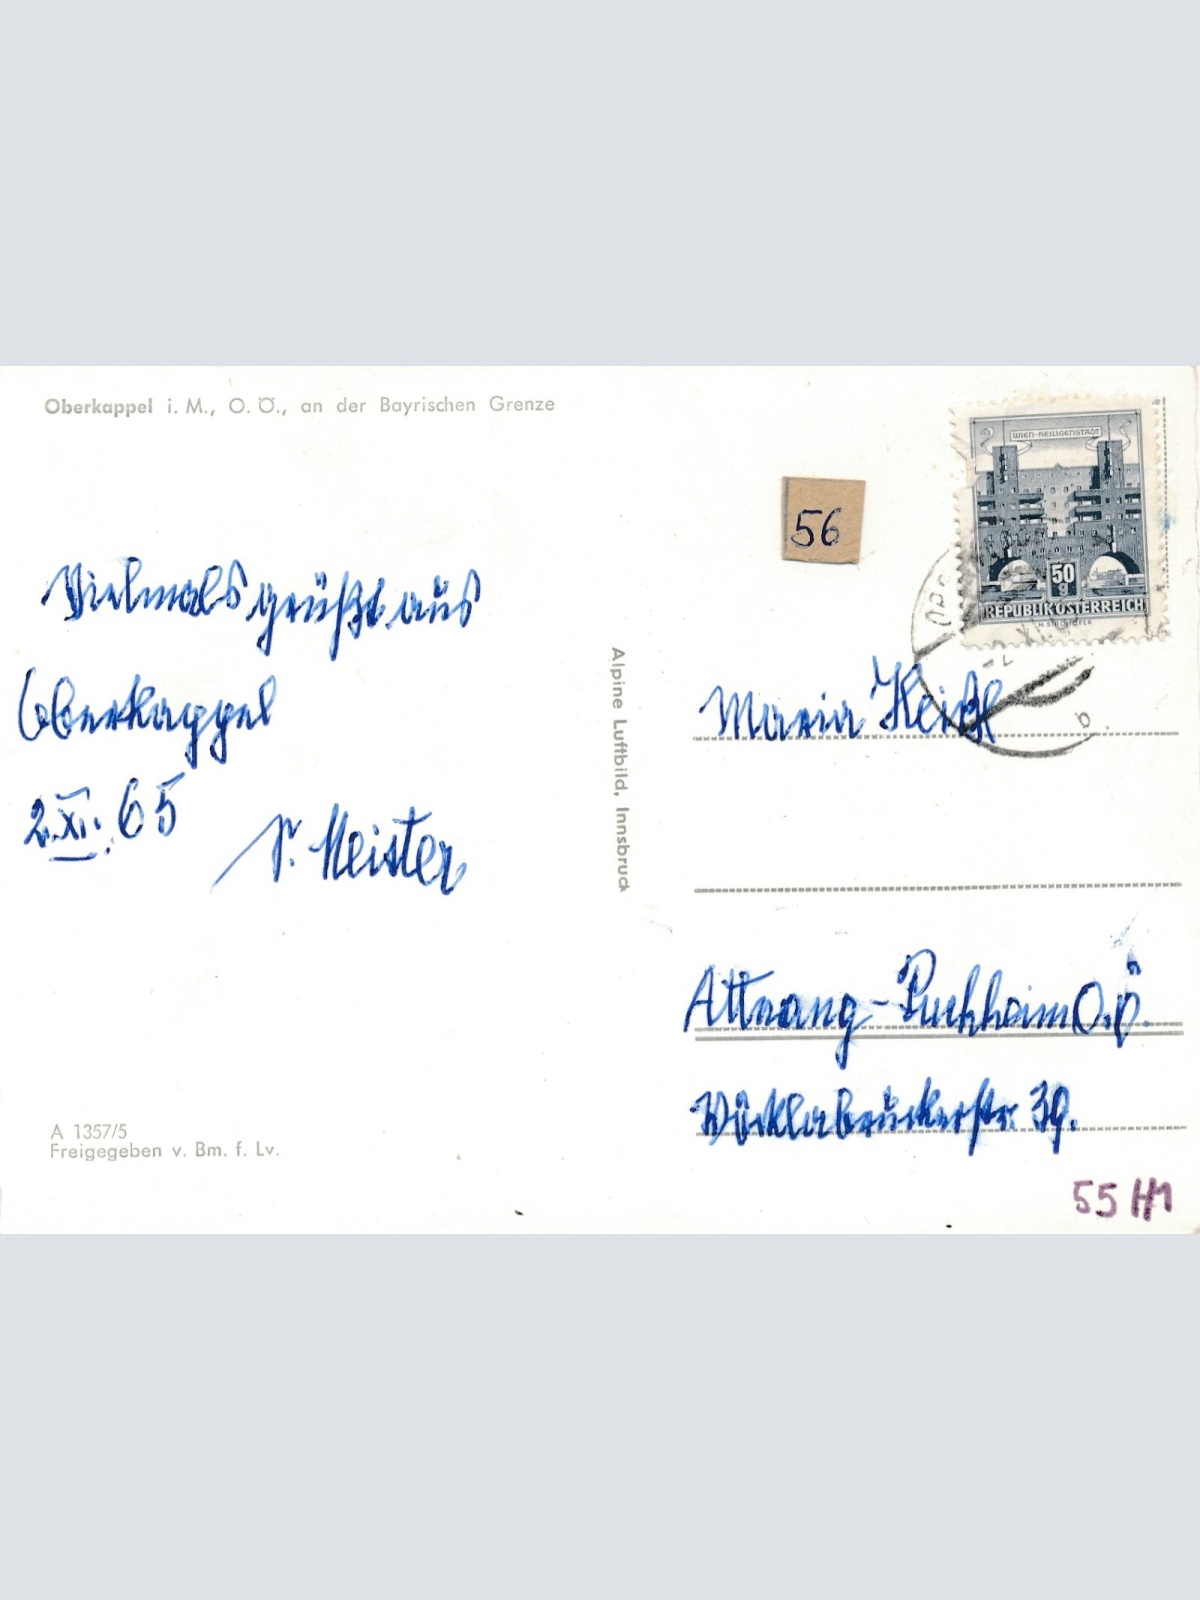 Oberkappel i. M., O. Ö., an der Bayrischen Grenze
Vielmals grüßt aus
Oberkappel
2.XI.65
Meister
A 1357/5
Freigegeben v. Bm. f. Lv.
Alpine Luftbild, Innsbruck
56
WIEN-HEILIGENSTADT
50
g
REPUBLIK ÖSTERREICH
b
Maria
Attnang-Puchheim O.Ö.
Vöcklabruckerstr. 39.
55 H1